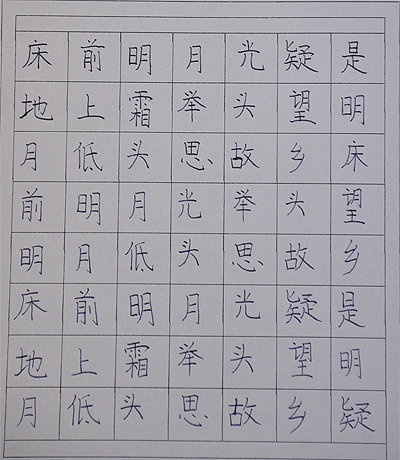 床前明月光疑是
地上霜举头望明
月低头思故乡床
前明月光举头望
明月低头思故乡
床前明月光疑是
地上霜举头望明
月低头思故乡疑